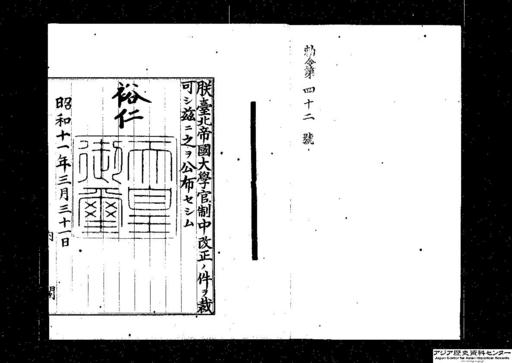 勅令第四十二號
朕臺北帝國大學官制中改正ノ件ヲ裁
可シ茲ニ之ヲ公布セシム
裕仁
天皇御璽
昭和十一年三月三十一日
内閣
アジア歴史資料センター
Japan Center for Asian Historical Records